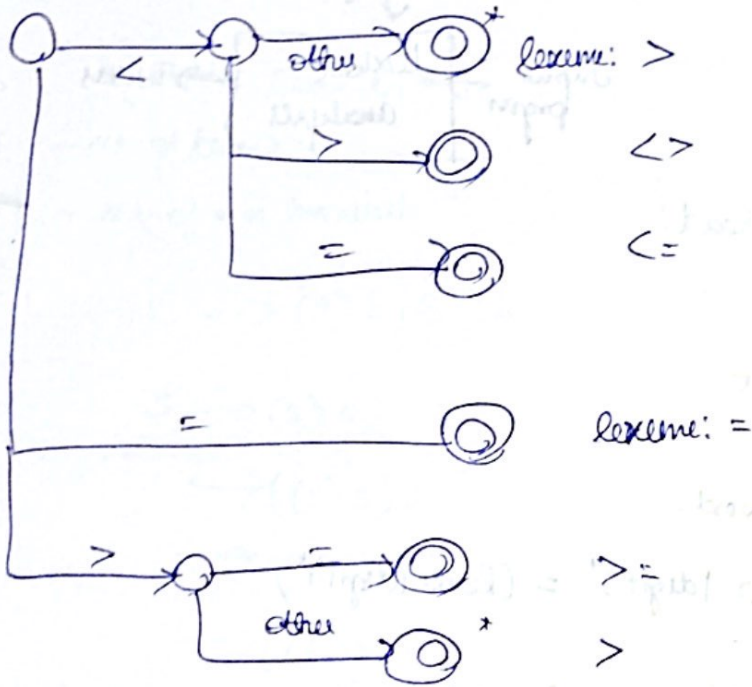 < other * lexeme: >
> <>
= <=
= lexeme: =
> = >=
other * >